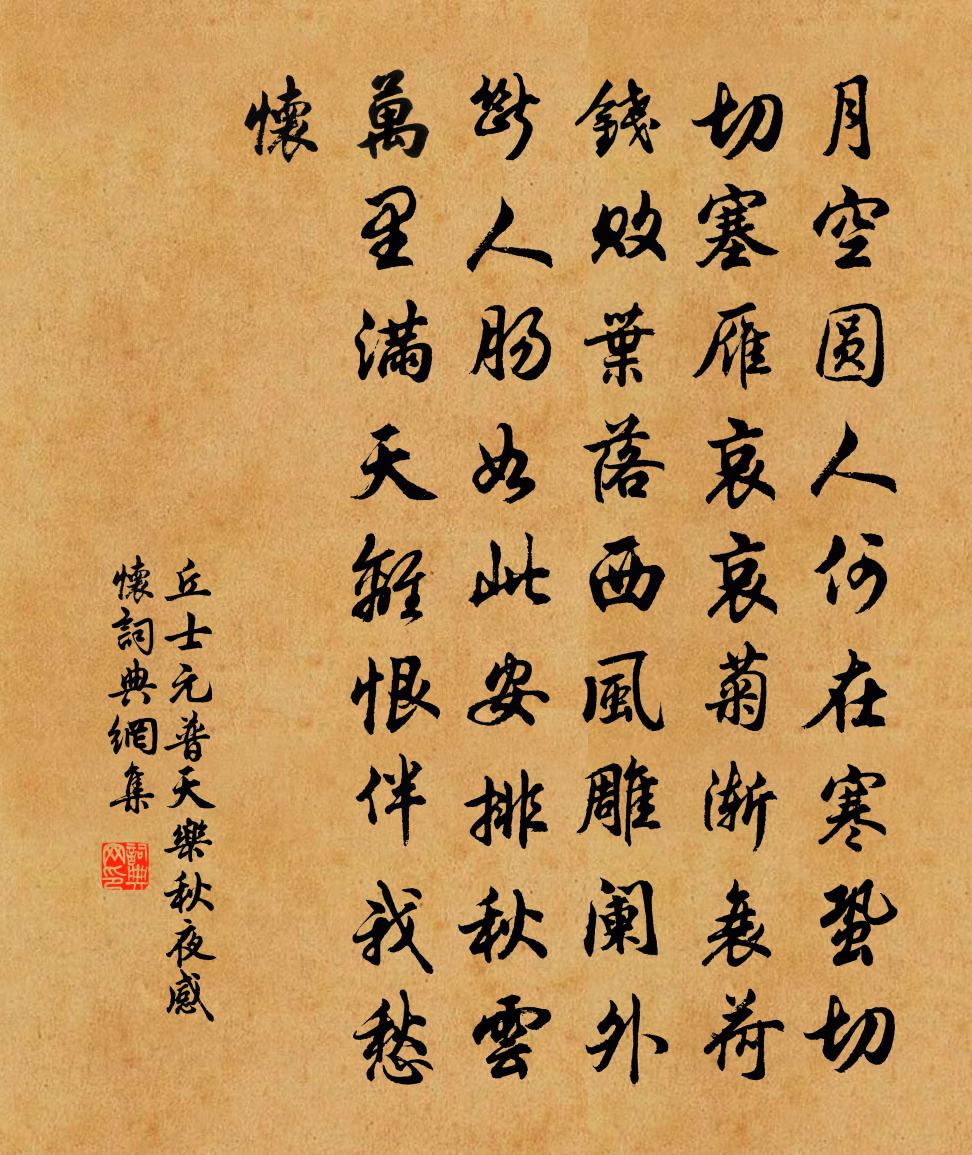 月空圓人何在寒蛩切
切塞雁哀哀菊漸衰荷
錢敗葉落西風雕闌外
斷人腸如此安排秋雲
萬里滿天離恨伴我愁
懷
丘士元普天樂秋夜感
懷詞典網集
詞典網印